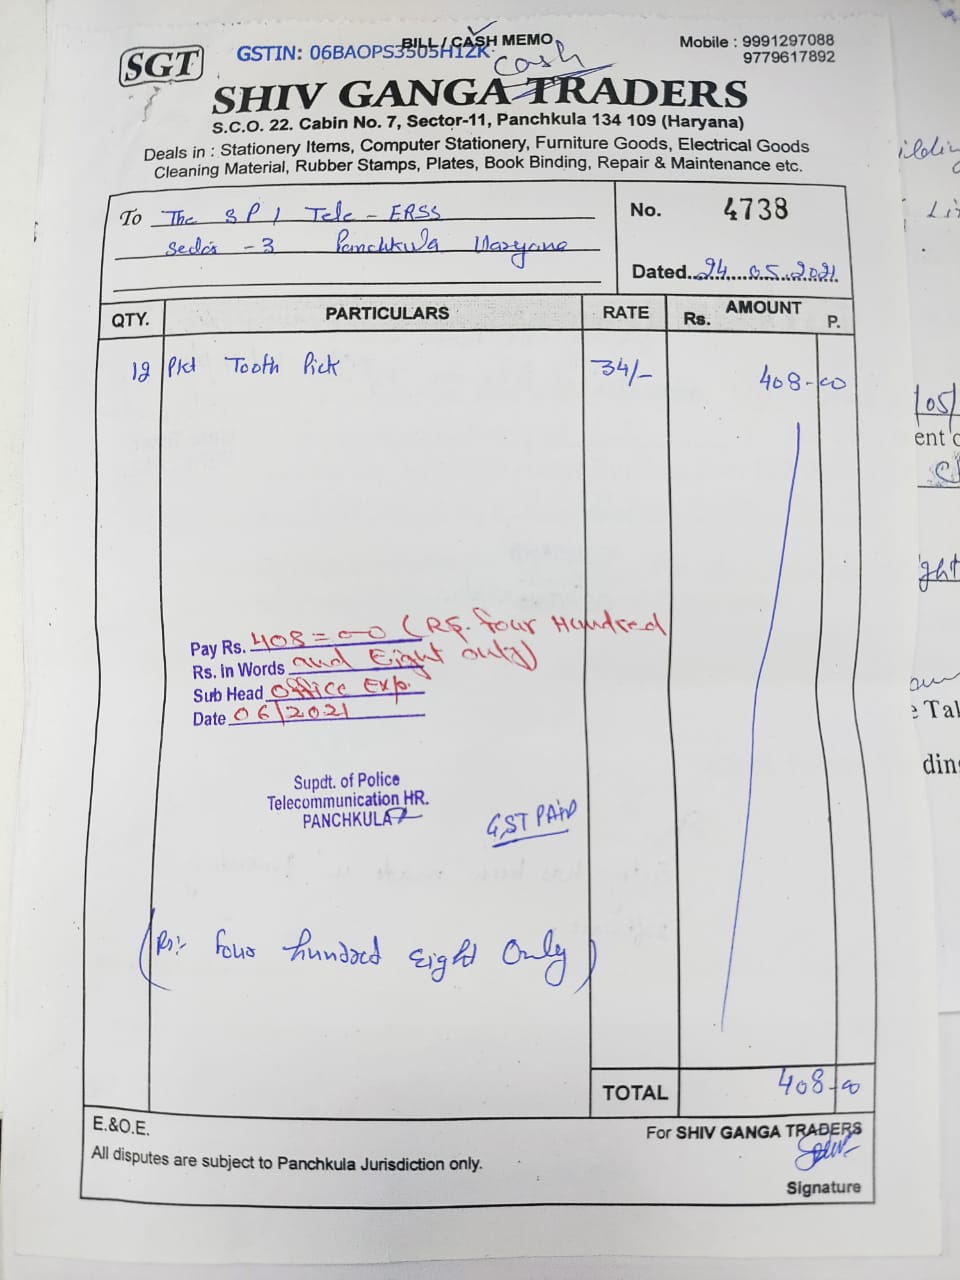 SGT
GSTIN: 06BAOPS3505H1ZK
BILL / CASH MEMO
Cash
Mobile : 9991297088
9779617892
SHIV GANGA TRADERS
S.C.O. 22. Cabin No. 7, Sector-11, Panchkula 134 109 (Haryana)
Deals in : Stationery Items, Computer Stationery, Furniture Goods, Electrical Goods
Cleaning Material, Rubber Stamps, Plates, Book Binding, Repair & Maintenance etc.
To The S P / Tele - ERSS
Sector - 3 Panchkula Haryana
No. 4738
Dated. 24.05.2021
QTY. PARTICULARS RATE AMOUNT
Rs. P.
12 Pkt Tooth Pick 34/- 408-00
Pay Rs. 408=00 (Rs. four Hundred
Rs. in Words and Eight only)
Sub Head Office Exp.
Date 06/2021
Supdt. of Police
Telecommunication HR.
PANCHKULA
GST PAID
(Rs:- four hundred Eight Only)
TOTAL 408-00
E.&O.E.
For SHIV GANGA TRADERS
All disputes are subject to Panchkula Jurisdiction only.
Signature